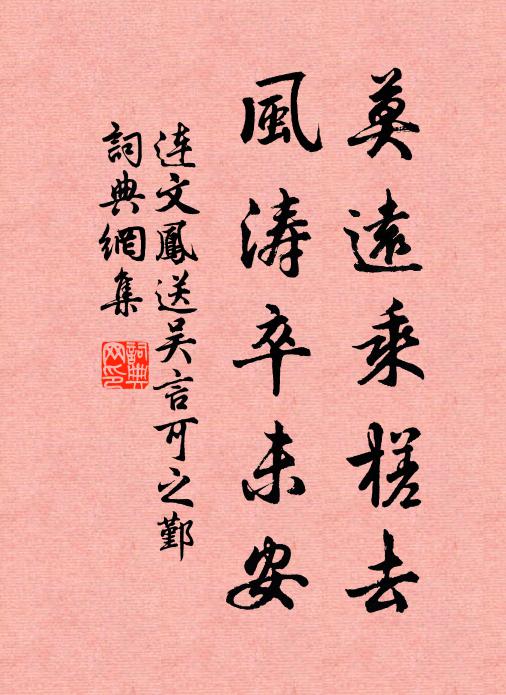 莫遠乘槎去
風濤卒未安
連文鳳送吴言可之鄞
詞典網集
詞典網印